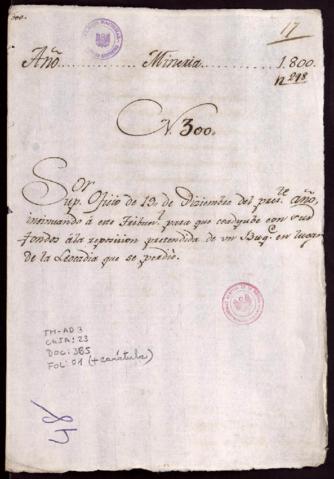 17
Año.......... Mineria.......... 1,800.
N. 300.
Sor
Sup. Oficio de 19, de Diziembre del pres.te año,
insinuando á este Tribun.l para que coadyube con sus
fondos á la reposision pretendida de un Buq.e en lugar
de la Leocadia que se perdio.
TM-AD 3
CAJA: 23
DOC: 385
FOL: 01 (+ carátula)
48